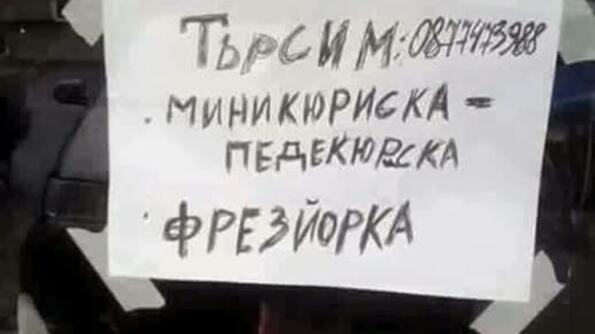 ТЪРСИМ: 0877473988
. МИНИКЮРИСКА -
ПЕДЕКЮРСКА
. ФРЕЗЙОРКА